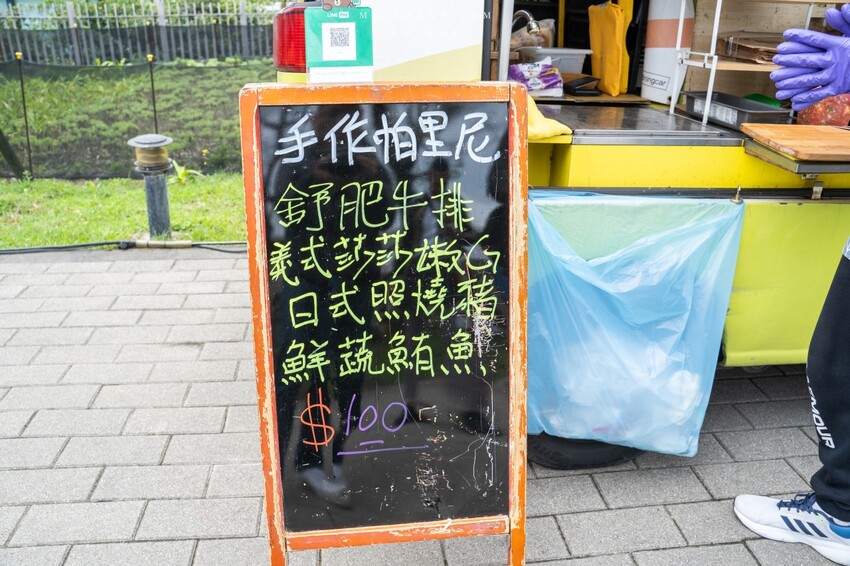 LINE Pay M
M
手作帕里尼
舒肥牛排
義式莎莎嫩G
日式照燒豬
鮮蔬鮪魚
$100